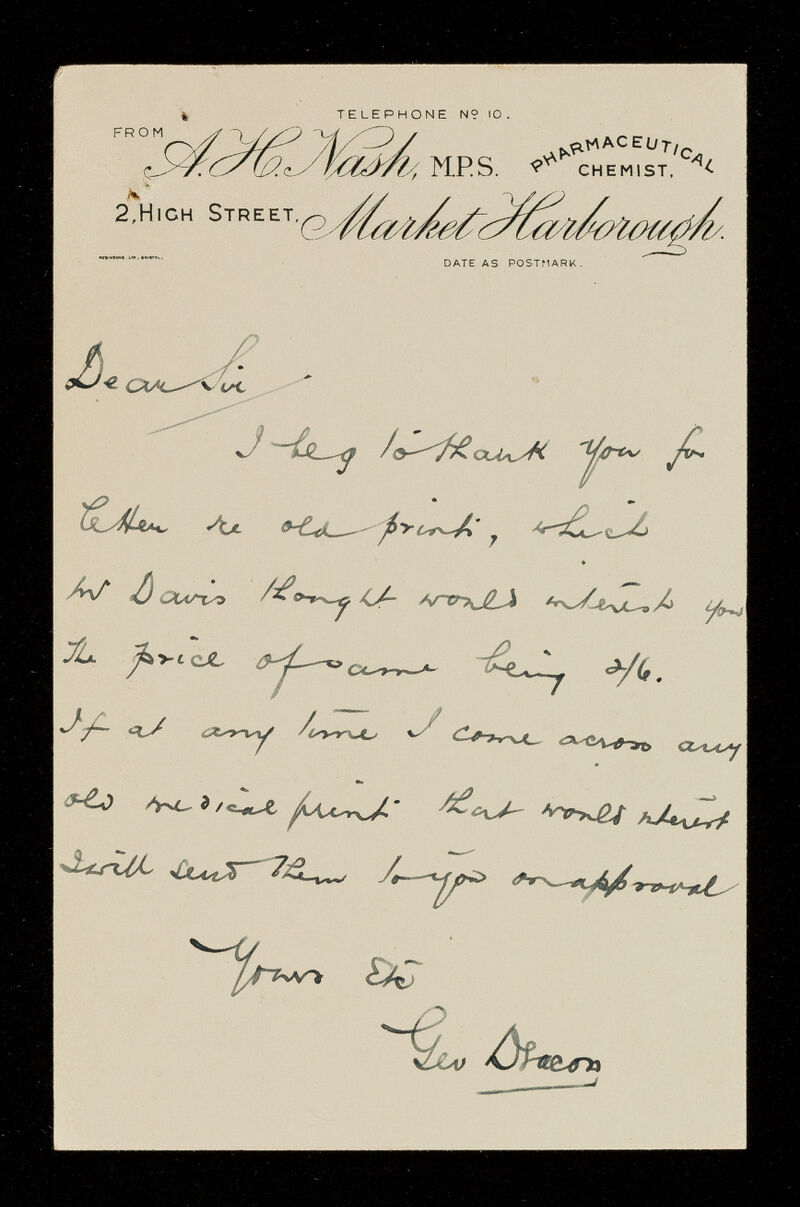 TELEPHONE Nº 10.
FROM A. H. Nash, M.P.S. PHARMACEUTICAL CHEMIST,
2, HIGH STREET, Market Harborough.
ROBINSONS, LTD., BRISTOL.
DATE AS POSTMARK.
Dear Sir
I beg to thank you for
letter re old prints, which
Mr Davis thought would interest you
the price of same being 2/6.
If at any time I come across any
old medical prints that would interest
I will send them to you on approval
Yours Etc
Geo Deacon